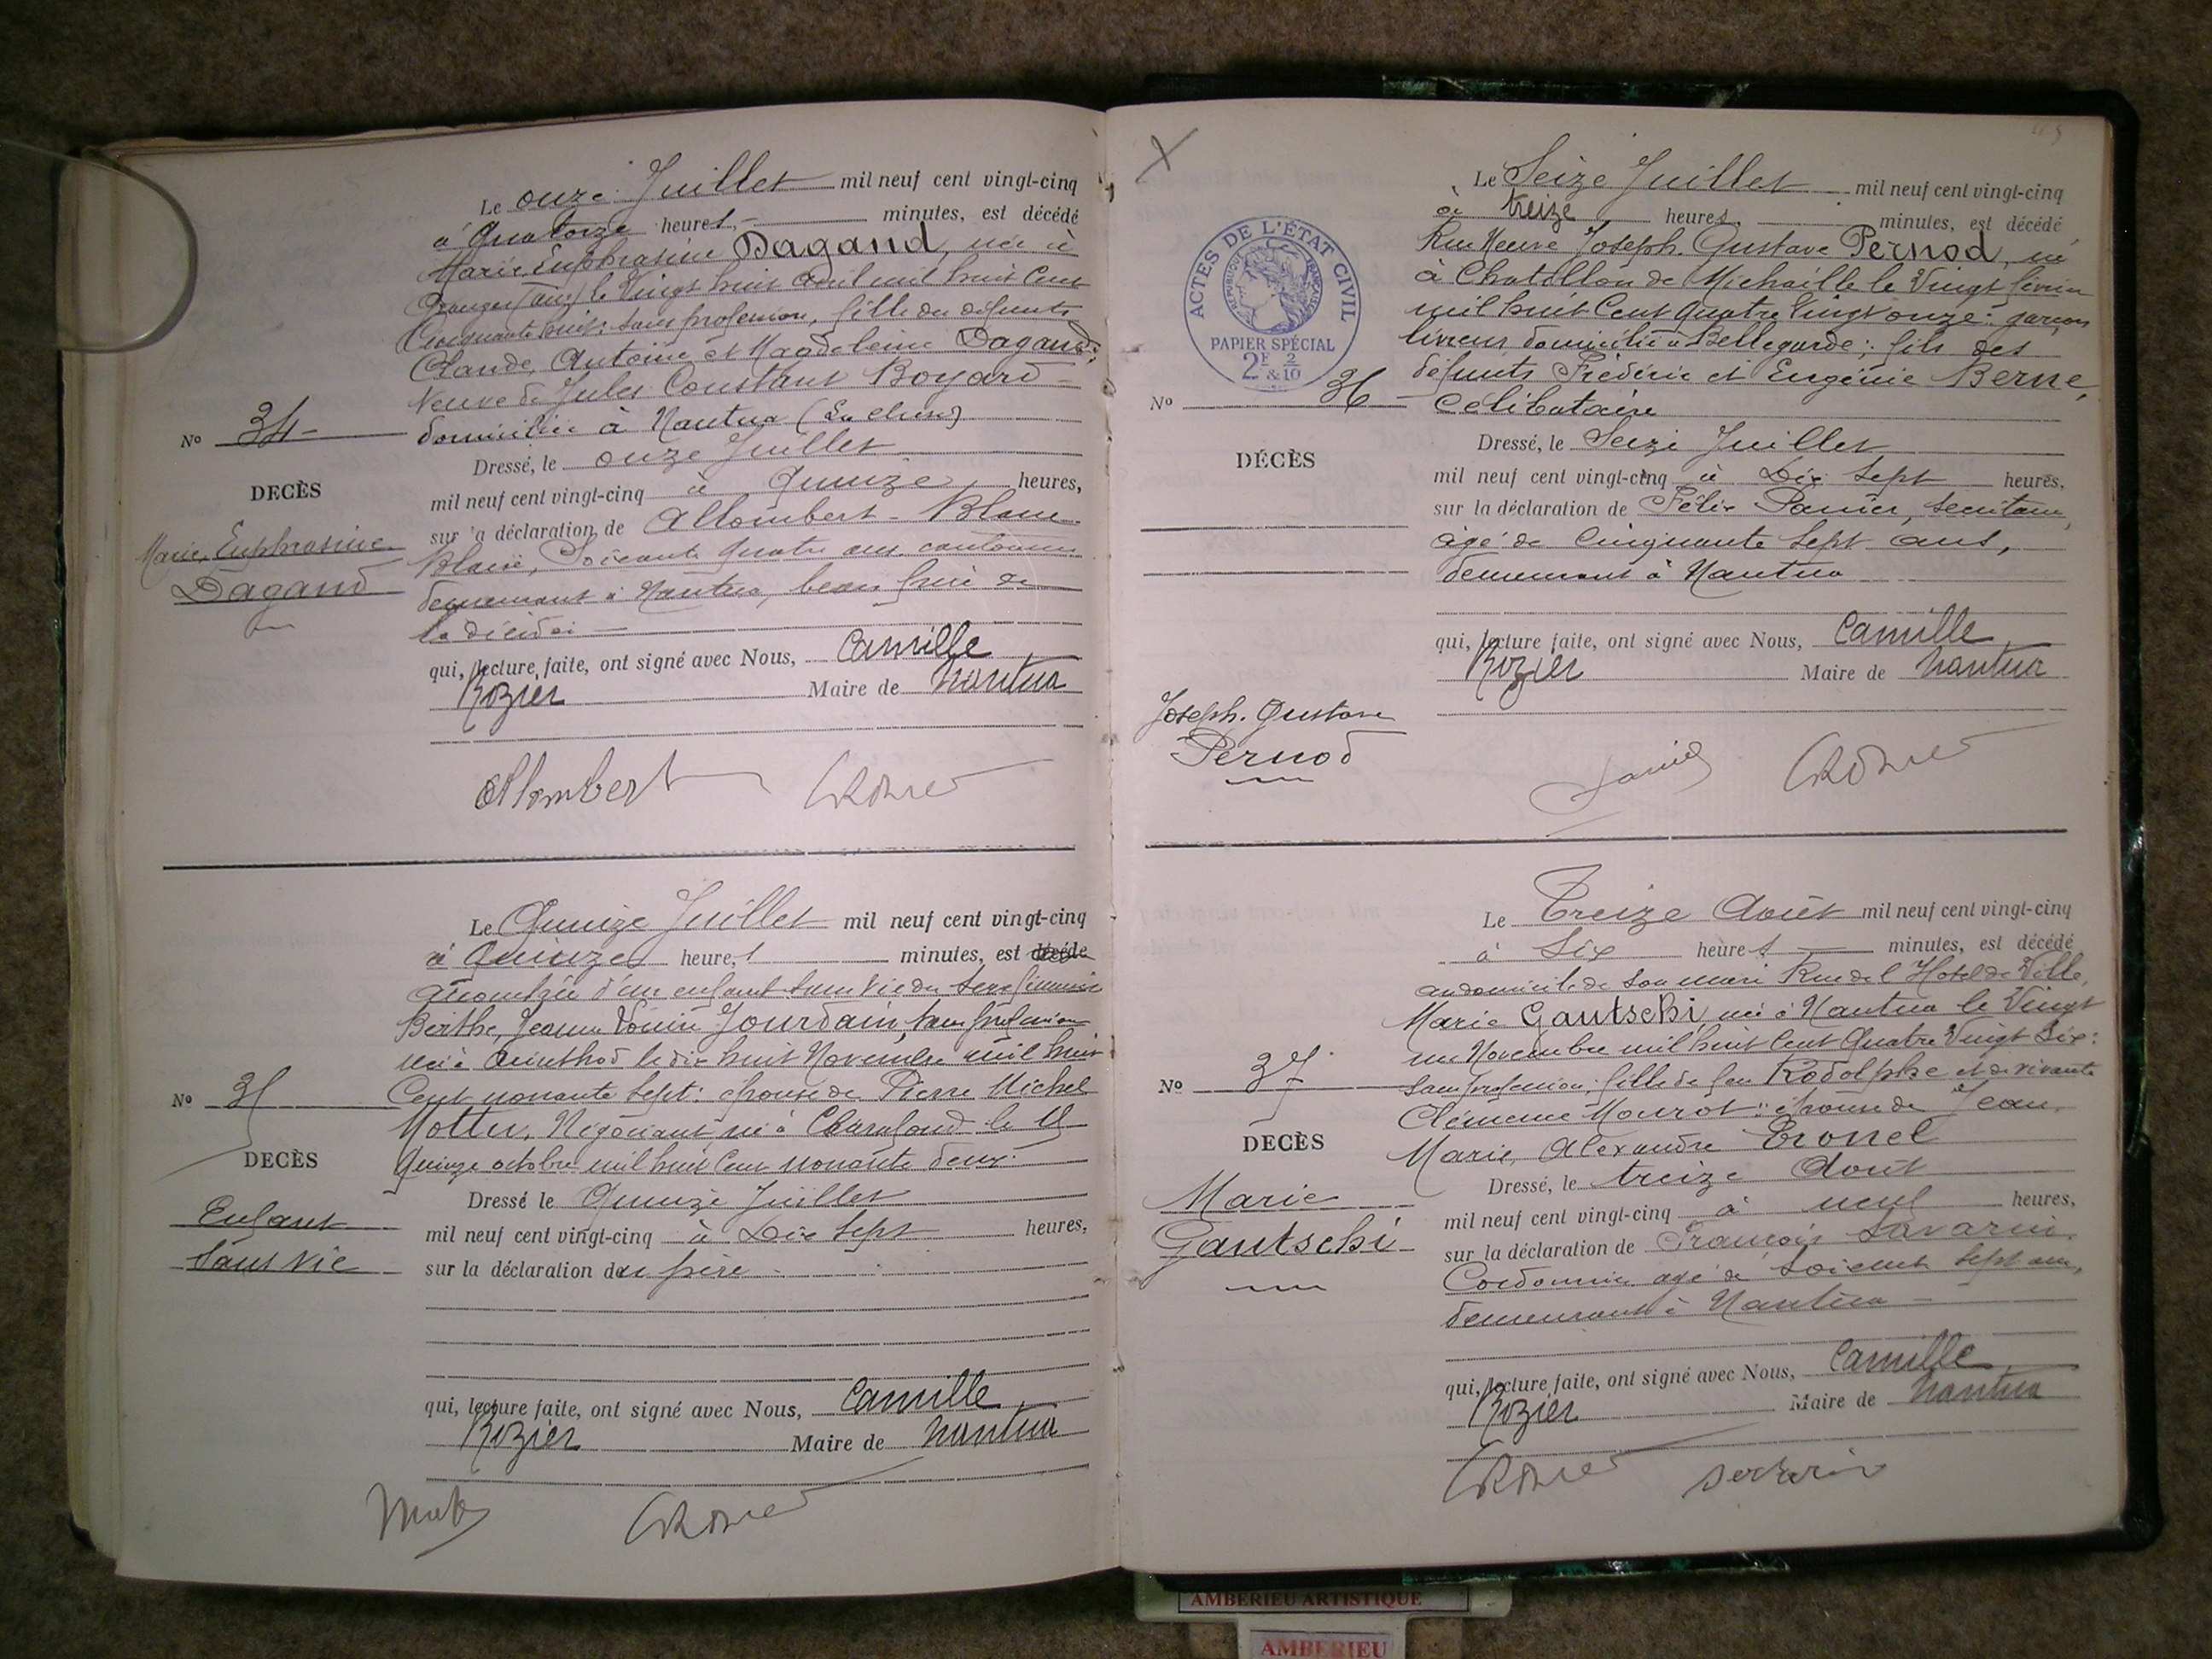 Le onze Juillet mil neuf cent vingt-cinq
à Quatorze heures, minutes, est décédé
Marie Euphrasine Dagand, née à
le Vingt huit avril mil huit Cent
Cinquante huit; sans profession, fille des défunts
Claude, Antoine et Magdeleine Dagand:
Veuve de Jules Constant Boyard
domiciliée à Nantua (La cluse)
Nº 34
DECÈS
Marie, Euphrasine
Dagand
Dressé, le onze Juillet
mil neuf cent vingt-cinq à Quinze heures,
sur la déclaration de Allombert-Blanc
Blaise, Soixante quatre ans cantonnier
demeurant à Nantua, beau frère de
la décédée
qui, lecture faite, ont signé avec Nous, Camille
Rozier Maire de Nantua
Allombert CRozier
Le Quinze Juillet mil neuf cent vingt-cinq
à Quinze heure,s minutes, est décédé
accouchée d'un enfant sans vie du sexe féminin
Berthe, Jeanne Louise Jourdain, sans profession
née à le dix huit Novembre mil huit
Cent nonante sept: épouse de Pierre Michel
Mottet, Négociant né à le 15
quinze octobre mil huit Cent nonante deux.
Nº 35
DECÈS
Enfant
Sans vie
Dressé le Quinze Juillet
mil neuf cent vingt-cinq à Dix Sept heures,
sur la déclaration du père
qui, lecture faite, ont signé avec Nous, Camille
Rozier Maire de Nantua
CRozier
Le Seize Juillet mil neuf cent vingt-cinq
à treize heures minutes, est décédé
Rue Neuve Joseph. Gustave Pernod, né
à Chatillon de Michaille le Vingt février
mil huit Cent Quatre Vingt onze: garçon
livreur domicilié à Bellegarde; fils des
défunts Frédéric et Eugénie Berne,
célibataire
ACTES DE L'ÉTAT CIVIL
RÉPUBLIQUE FRANÇAISE
PAPIER SPÉCIAL
2F & 2/10
Nº 36
DÉCÈS
Joseph. Gustave
Pernod
Dressé, le Seize Juillet
mil neuf cent vingt-cinq à Dix Sept heures,
sur la déclaration de Félix Panier, secrétaire,
âgé de Cinquante Sept ans,
demeurant à Nantua
qui, lecture faite, ont signé avec Nous, Camille
Rozier Maire de Nantua
Panier CRozier
Le Treize Août mil neuf cent vingt-cinq
à Six heures minutes, est décédé
au domicile de son mari Rue de l'Hotel de Ville,
Marie Gautschi, née à Nantua le Vingt
un Novembre mil huit Cent Quatre Vingt Six:
sans profession; fille de feu Rodolphe et de vivante
Clémence Mourot: épouse de Jean,
Marie, Alexandre Tronel
Nº 37
DECÈS
Marie
Gautschi
Dressé, le treize Août
mil neuf cent vingt-cinq à neuf heures,
sur la déclaration de François Savarin,
Cordonnier agé de soixante sept ans,
demeurant à Nantua
qui, lecture faite, ont signé avec Nous, Camille
Rozier Maire de Nantua
CRozier
AMBERIEU ARTISTIQUE
AMBERIEU